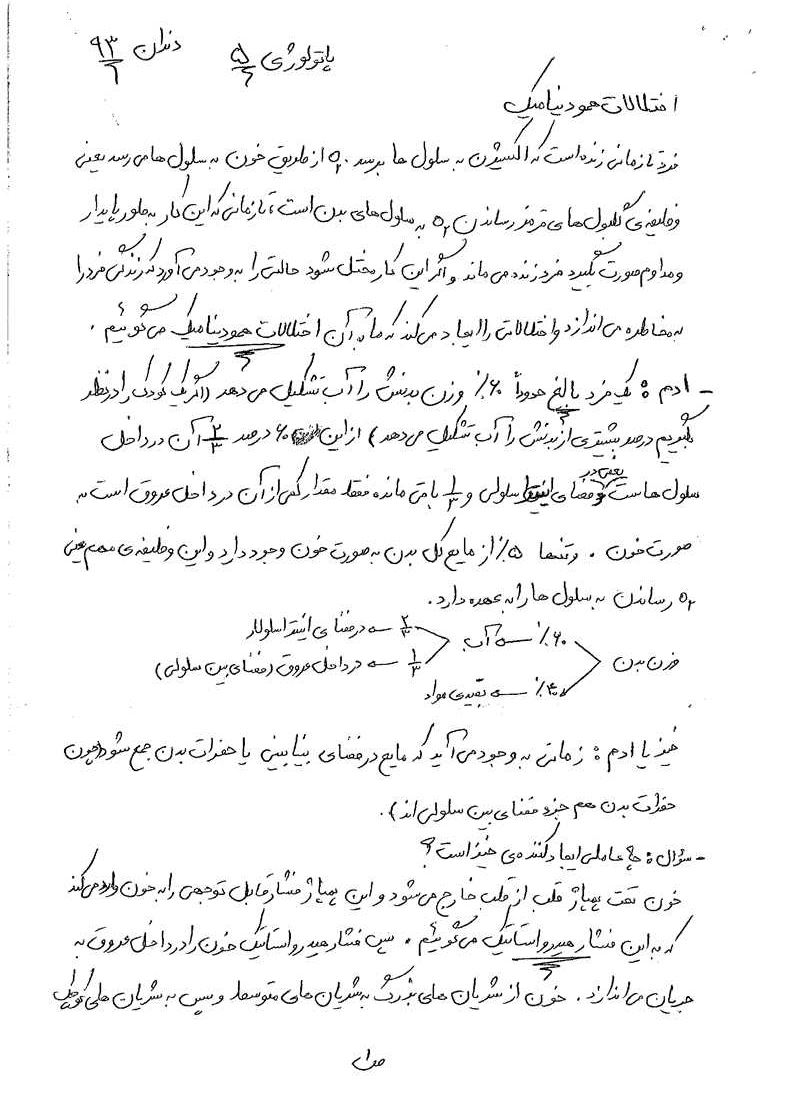 پاتولوژی ۵/۶ دندان ۹۳/۶
اختلالات همودینامیک
فرد تا زمانی زنده است که اکسیژن به سلول ها برسد. O₂ از طریق خون به سلول ها می رسد یعنی
وظیفه ی گلبول های قرمز رساندن O₂ به سلول های بدن است، تا زمانی که این کار به طور پایدار
و مداوم صورت بگیرد فرد زنده می ماند و اگر این کار مختل شود حالتی را به وجود می آورد که زندگی فرد را
به مخاطره می اندازد و اختلالاتی را ایجاد می کند که ما به آن اختلالات همودینامیک می گوئیم.
- ادم: یک فرد بالغ حدوداً ۶۰٪ وزن بدنش را آب تشکیل می دهد (اگر یک کودک را در نظر
بگیریم درصد بیشتری از بدنش را آب تشکیل می دهد) از این ۶۰ درصد ۲/۳ آن در داخل
سلول هاست یعنی در فضای اینترا سلولی و ۱/۳ باقی مانده فقط مقدار کمی از آن در داخل عروق است به
صورت خون. و تنها ۵٪ از مایع کل بدن به صورت خون وجود دارد و این وظیفه ی مهم یعنی
O₂ رساندن به سلول ها را به عهده دارد.
وزن بدن ۶۰٪ ← آب ۲/۳ ← در فضای اینتراسلولار
۱/۳ ← در داخل عروق (فضای بین سلولی)
۴۰٪ ← بقیه ی مواد
خیز یا ادم: زمانی به وجود می آید که مایع در فضای بینابینی یا حفرات بدن جمع شود (چون
حفرات بدن هم جزء فضای بین سلولی اند).
- سؤال: چه عاملی ایجاد کننده ی خیز است؟
خون تحت پمپاژ قلب از قلب خارج می شود و این پمپاژ فشار قابل توجهی را به خون وارد می کند
که به این فشار هیدرواستاتیک می گوئیم. سپس فشار هیدرواستاتیک خون را در داخل عروق به
جریان می اندازد. خون از شریان های بزرگ به شریان های متوسط و سپس به شریان های کوچک
ص۱